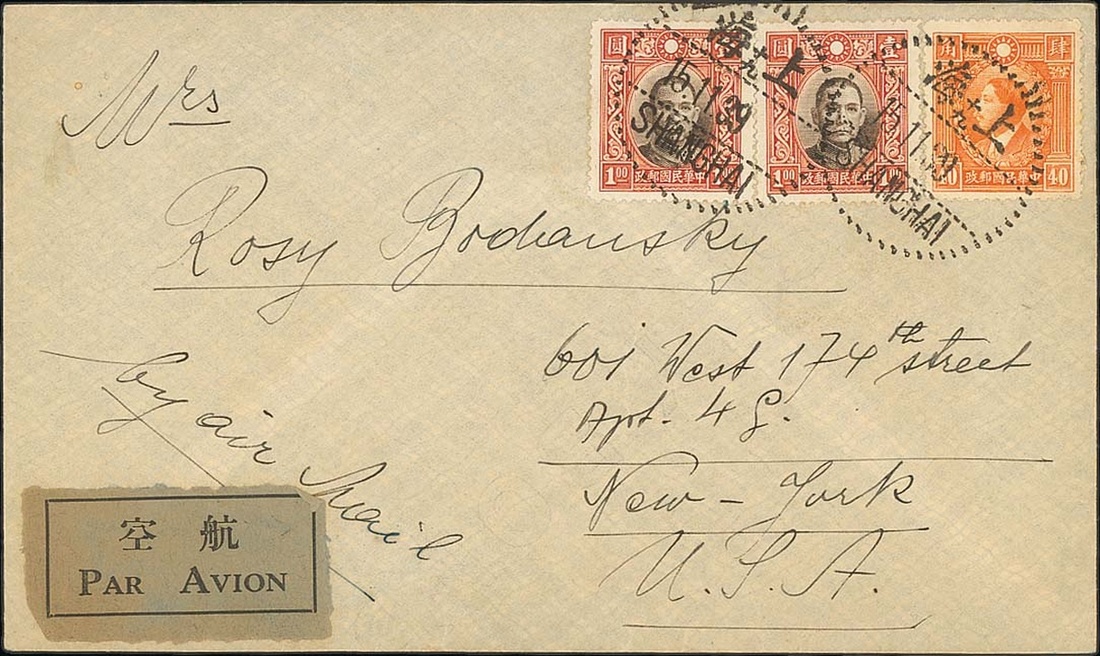 圓 壹
1.00 政郵國民華中 1.00
圓 壹
1.00 政郵國民華中 1.00
角 肆
40 政郵國民華中 40
海 上
15.11.39
SHANGHAI
海 上
15.11.39
SHANGHAI
Mrs
Rosy Bodansky
601 West 174th street
Apt. 4 G.
New-York
U.S.A.
by air Mail
空 航
PAR AVION